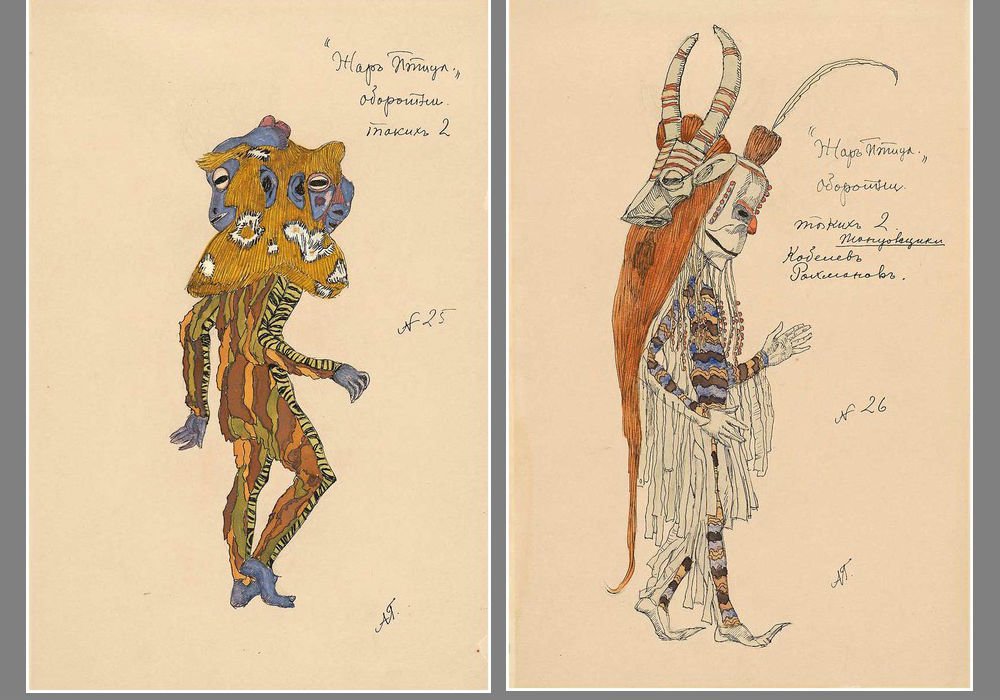 "Жаръ Птица."
оборотни.
такихъ 2
N 25
АГ.
"Жаръ Птица."
оборотни.
такихъ 2
танцовщики
Кобелевъ
Рахмановъ.
N 26
АГ.